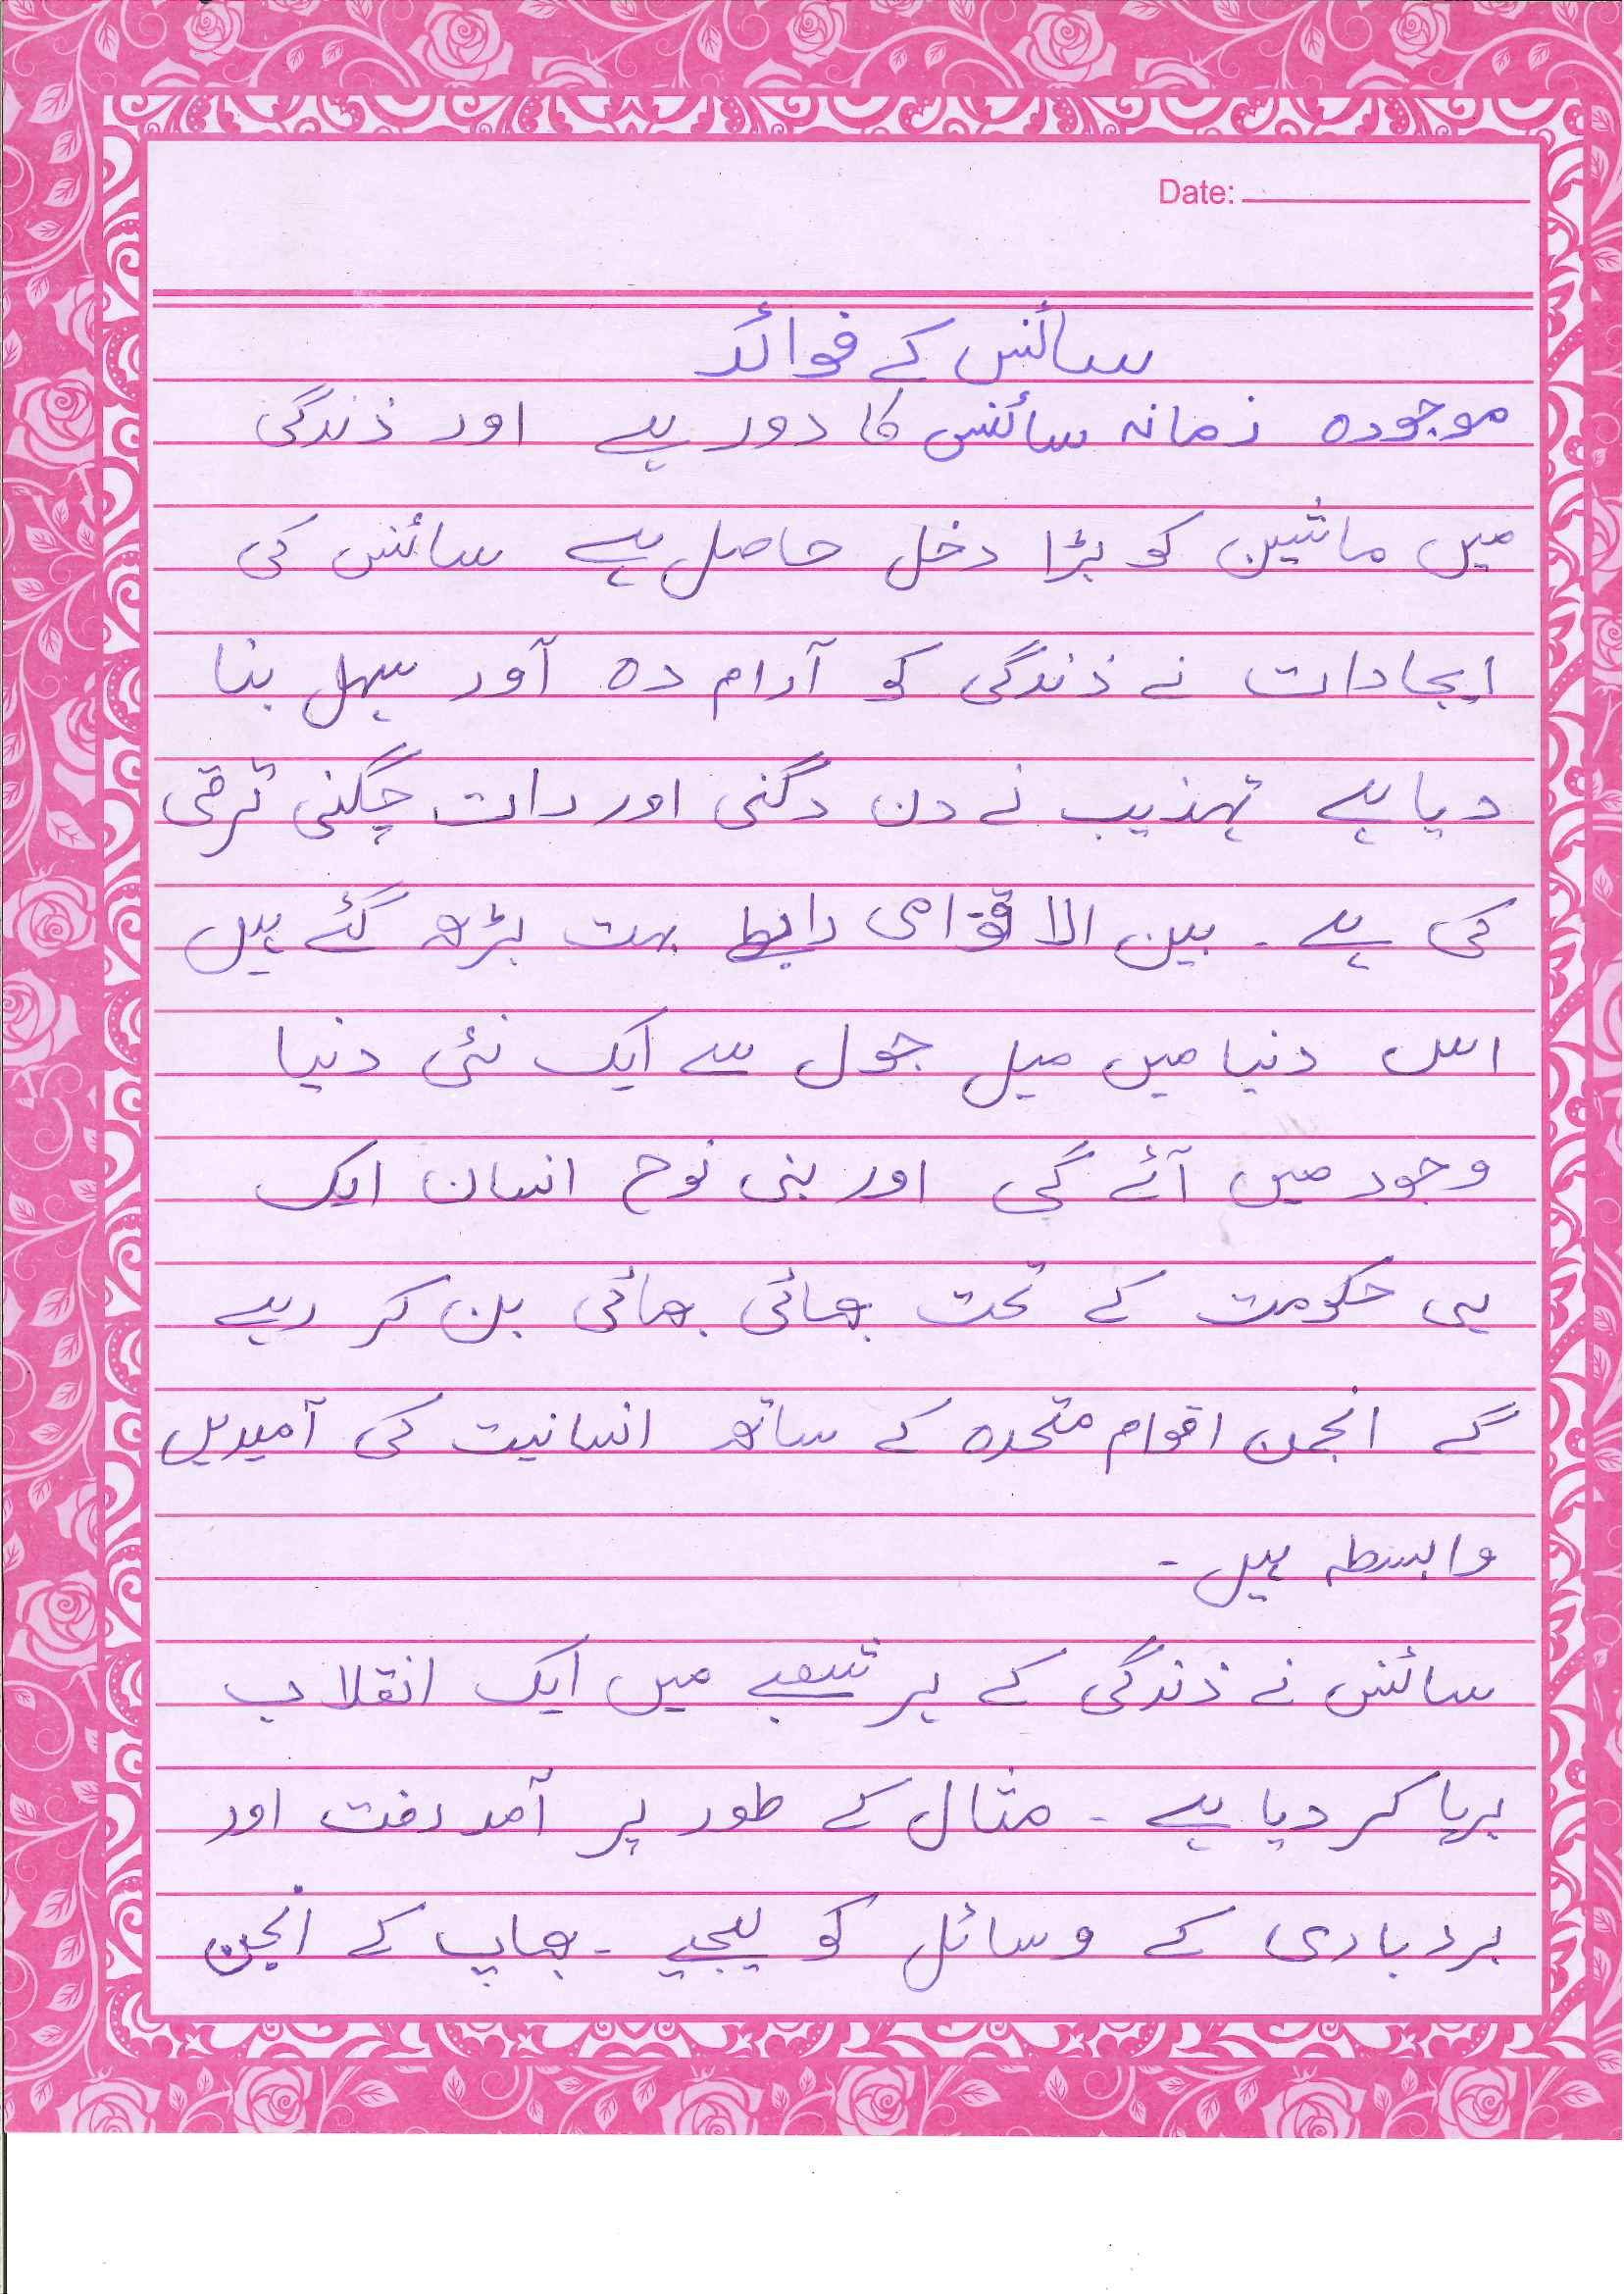 Date:
سائنس کے فوائد
موجودہ زمانہ سائنس کا دور ہے اور ذندگی
میں ماشین کو بڑا دخل حاصل ہے سائنس کی
ایجادات نے ذندگی کو آرام دہ آور سہل بنا
دیا ہے تہذیب نے دن دگنی اور رات چگنی ترقی
کی ہے ۔ بین الاقوامی رابط بہت بڑھ گئے ہیں
اس دنیا میں میل جول سے ایک نئی دنیا
وجود میں آئے گی اور بنی نوح انسان ایک
ہی حکومت کے تحت بھائی بھائی بن کر رہے
گے انجمن اقوام متحدہ کے ساتھ انسانیت کی آمیدیں
وابسطہ ہیں ۔
سائنس نے ذندگی کے ہر شعبے میں ایک انقلاب
برپا کر دیا ہے ۔ مثال کے طور پر آمد رفت اور
بردباری کے وسائل کو لیجیے ۔ بھاپ کے انجن